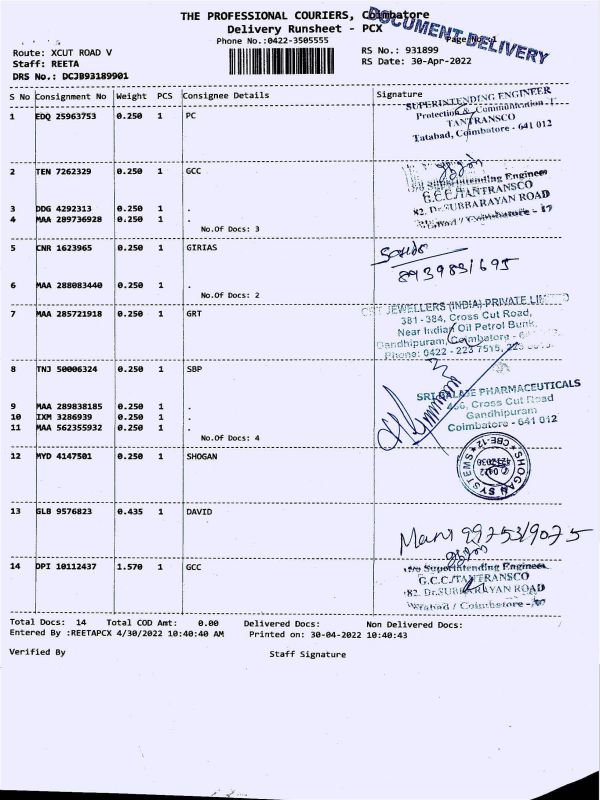 THE PROFESSIONAL COURIERS, Coimbatore
DOCUMENT DELIVERY
Delivery Runsheet - PCX
Page No.:1
Phone No.:0422-3505555
Route: XCUT ROAD V
RS No.: 931899
Staff: REETA
RS Date: 30-Apr-2022
DRS No.: DCJB93189901
S No Consignment No Weight PCS Consignee Details Signature
1 EDQ 25963753 0.250 1 PC
SUPERINTENDING ENGINEER
Protection & Communication
TANTRANSCO
Tatabad, Coimbatore - 641 012
2 TEN 7262329 0.250 1 GCC
Superintending Engineer
G.C.C./TANTRANSCO
82, Dr.SUBBARAYAN ROAD
Coimbatore - 12
3 DDG 4292313 0.250 1 .
4 MAA 289736928 0.250 1 .
No.Of Docs: 3
5 CNR 1623965 0.250 1 GIRIAS
8939831695
6 MAA 288083440 0.250 1 .
No.Of Docs: 2
7 MAA 285721918 0.250 1 GRT
JEWELLERS (INDIA) PRIVATE
381 - 384, Cross Cut Road,
Near Indian Oil Petrol Bunk,
Gandhipuram, Coimbatore -
Phone: 0422 - 223 7515,
8 TNJ 50006324 0.250 1 SBP
SRI PHARMACEUTICALS
Cross Cut Road
Gandhipuram
Coimbatore - 641 012
9 MAA 289838185 0.250 1 .
10 IXM 3286939 0.250 1 .
11 MAA 562355932 0.250 1 .
No.Of Docs: 4
12 MYD 4147501 0.250 1 SHOGAN
SHOGAN SYSTEMS CBE-12
13 GLB 9576823 0.435 1 DAVID
Mani 9975319075
14 DPI 10112437 1.570 1 GCC
Superintending Engineer
G.C.C./TANTRANSCO
82, Dr.SUBBARAYAN ROAD
Coimbatore -
Total Docs: 14 Total COD Amt: 0.00 Delivered Docs: Non Delivered Docs:
Entered By :REETAPCX 4/30/2022 10:40:40 AM Printed on: 30-04-2022 10:40:43
Verified By Staff Signature